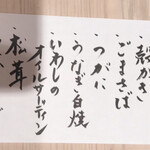 殻かき
ごまさば
つがに
うなぎ白焼
いわしの
オイルサーディン
松茸